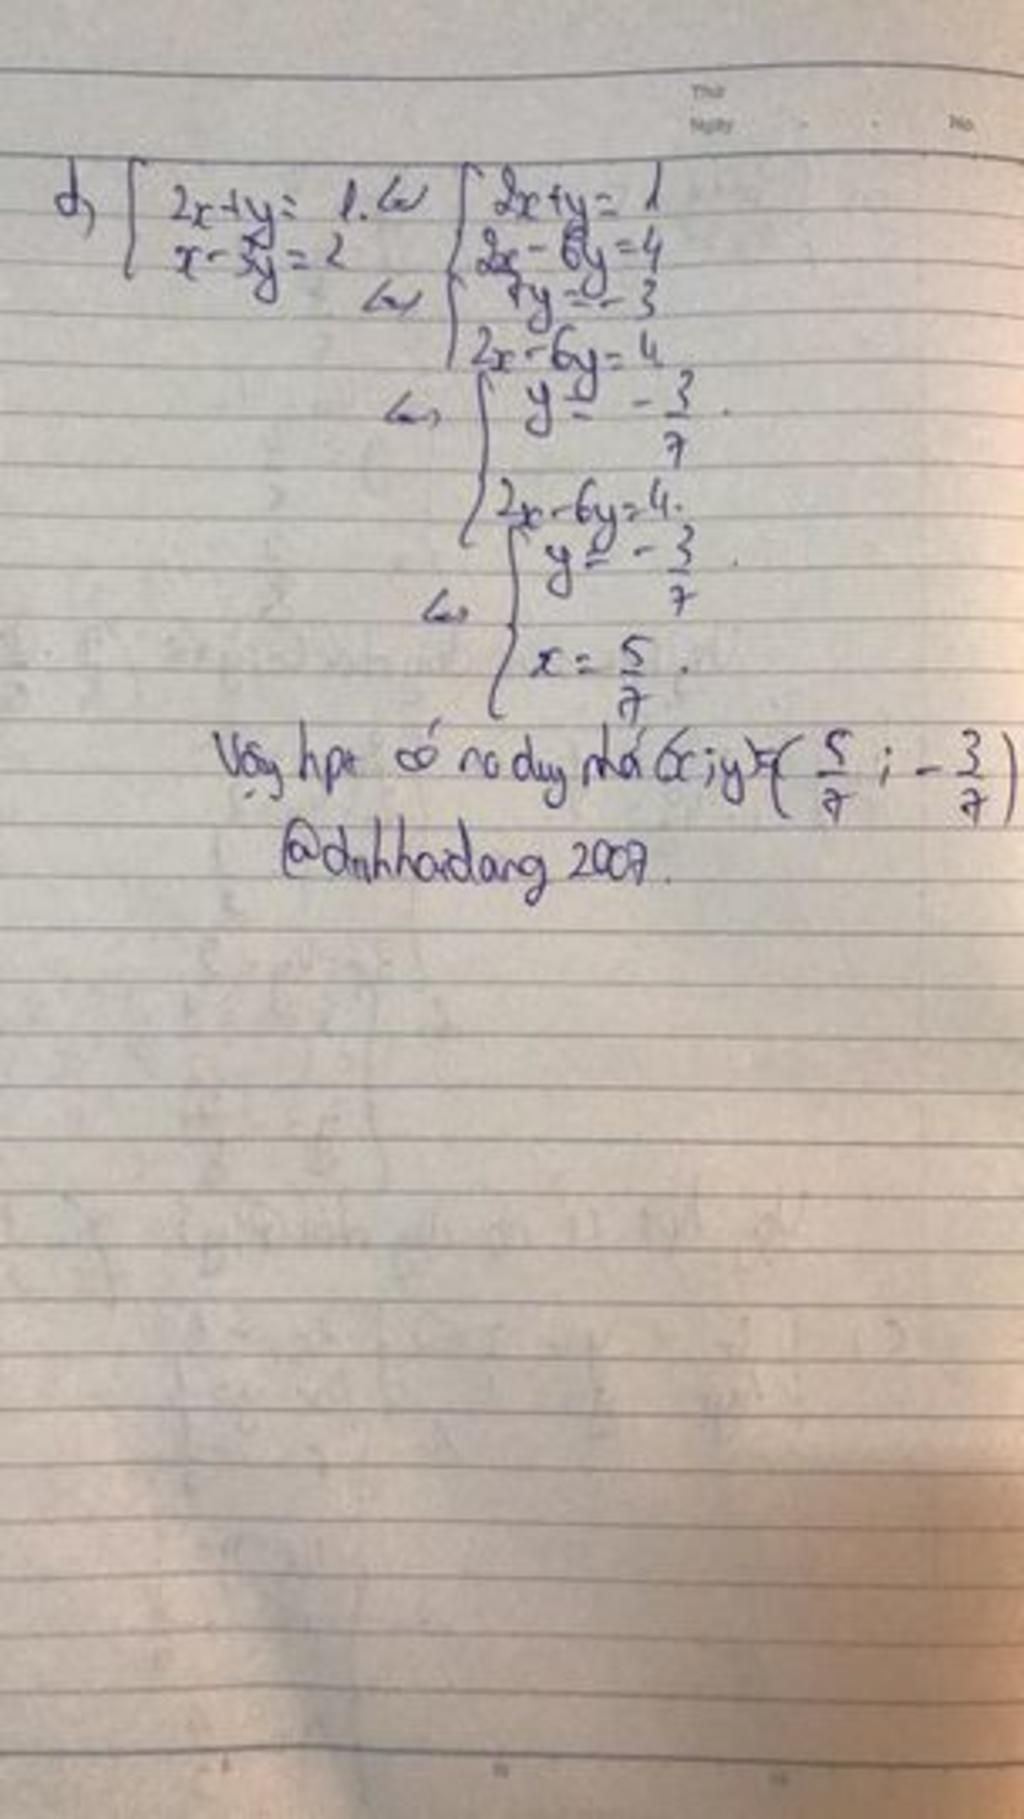 Thứ
Ngày No
d, { 2x+y= 1. <=> { 2x+y= 1
x-3y=2 2x-6y=4
<=> { 7y=-3
2x-6y=4
<=> { y= -3/7.
2x-6y=4.
<=> { y= -3/7.
x= 5/7.
Vậy hpt có no duy nhá (x;y)=(5/7; -3/7)
@dinhhaidang 2007.